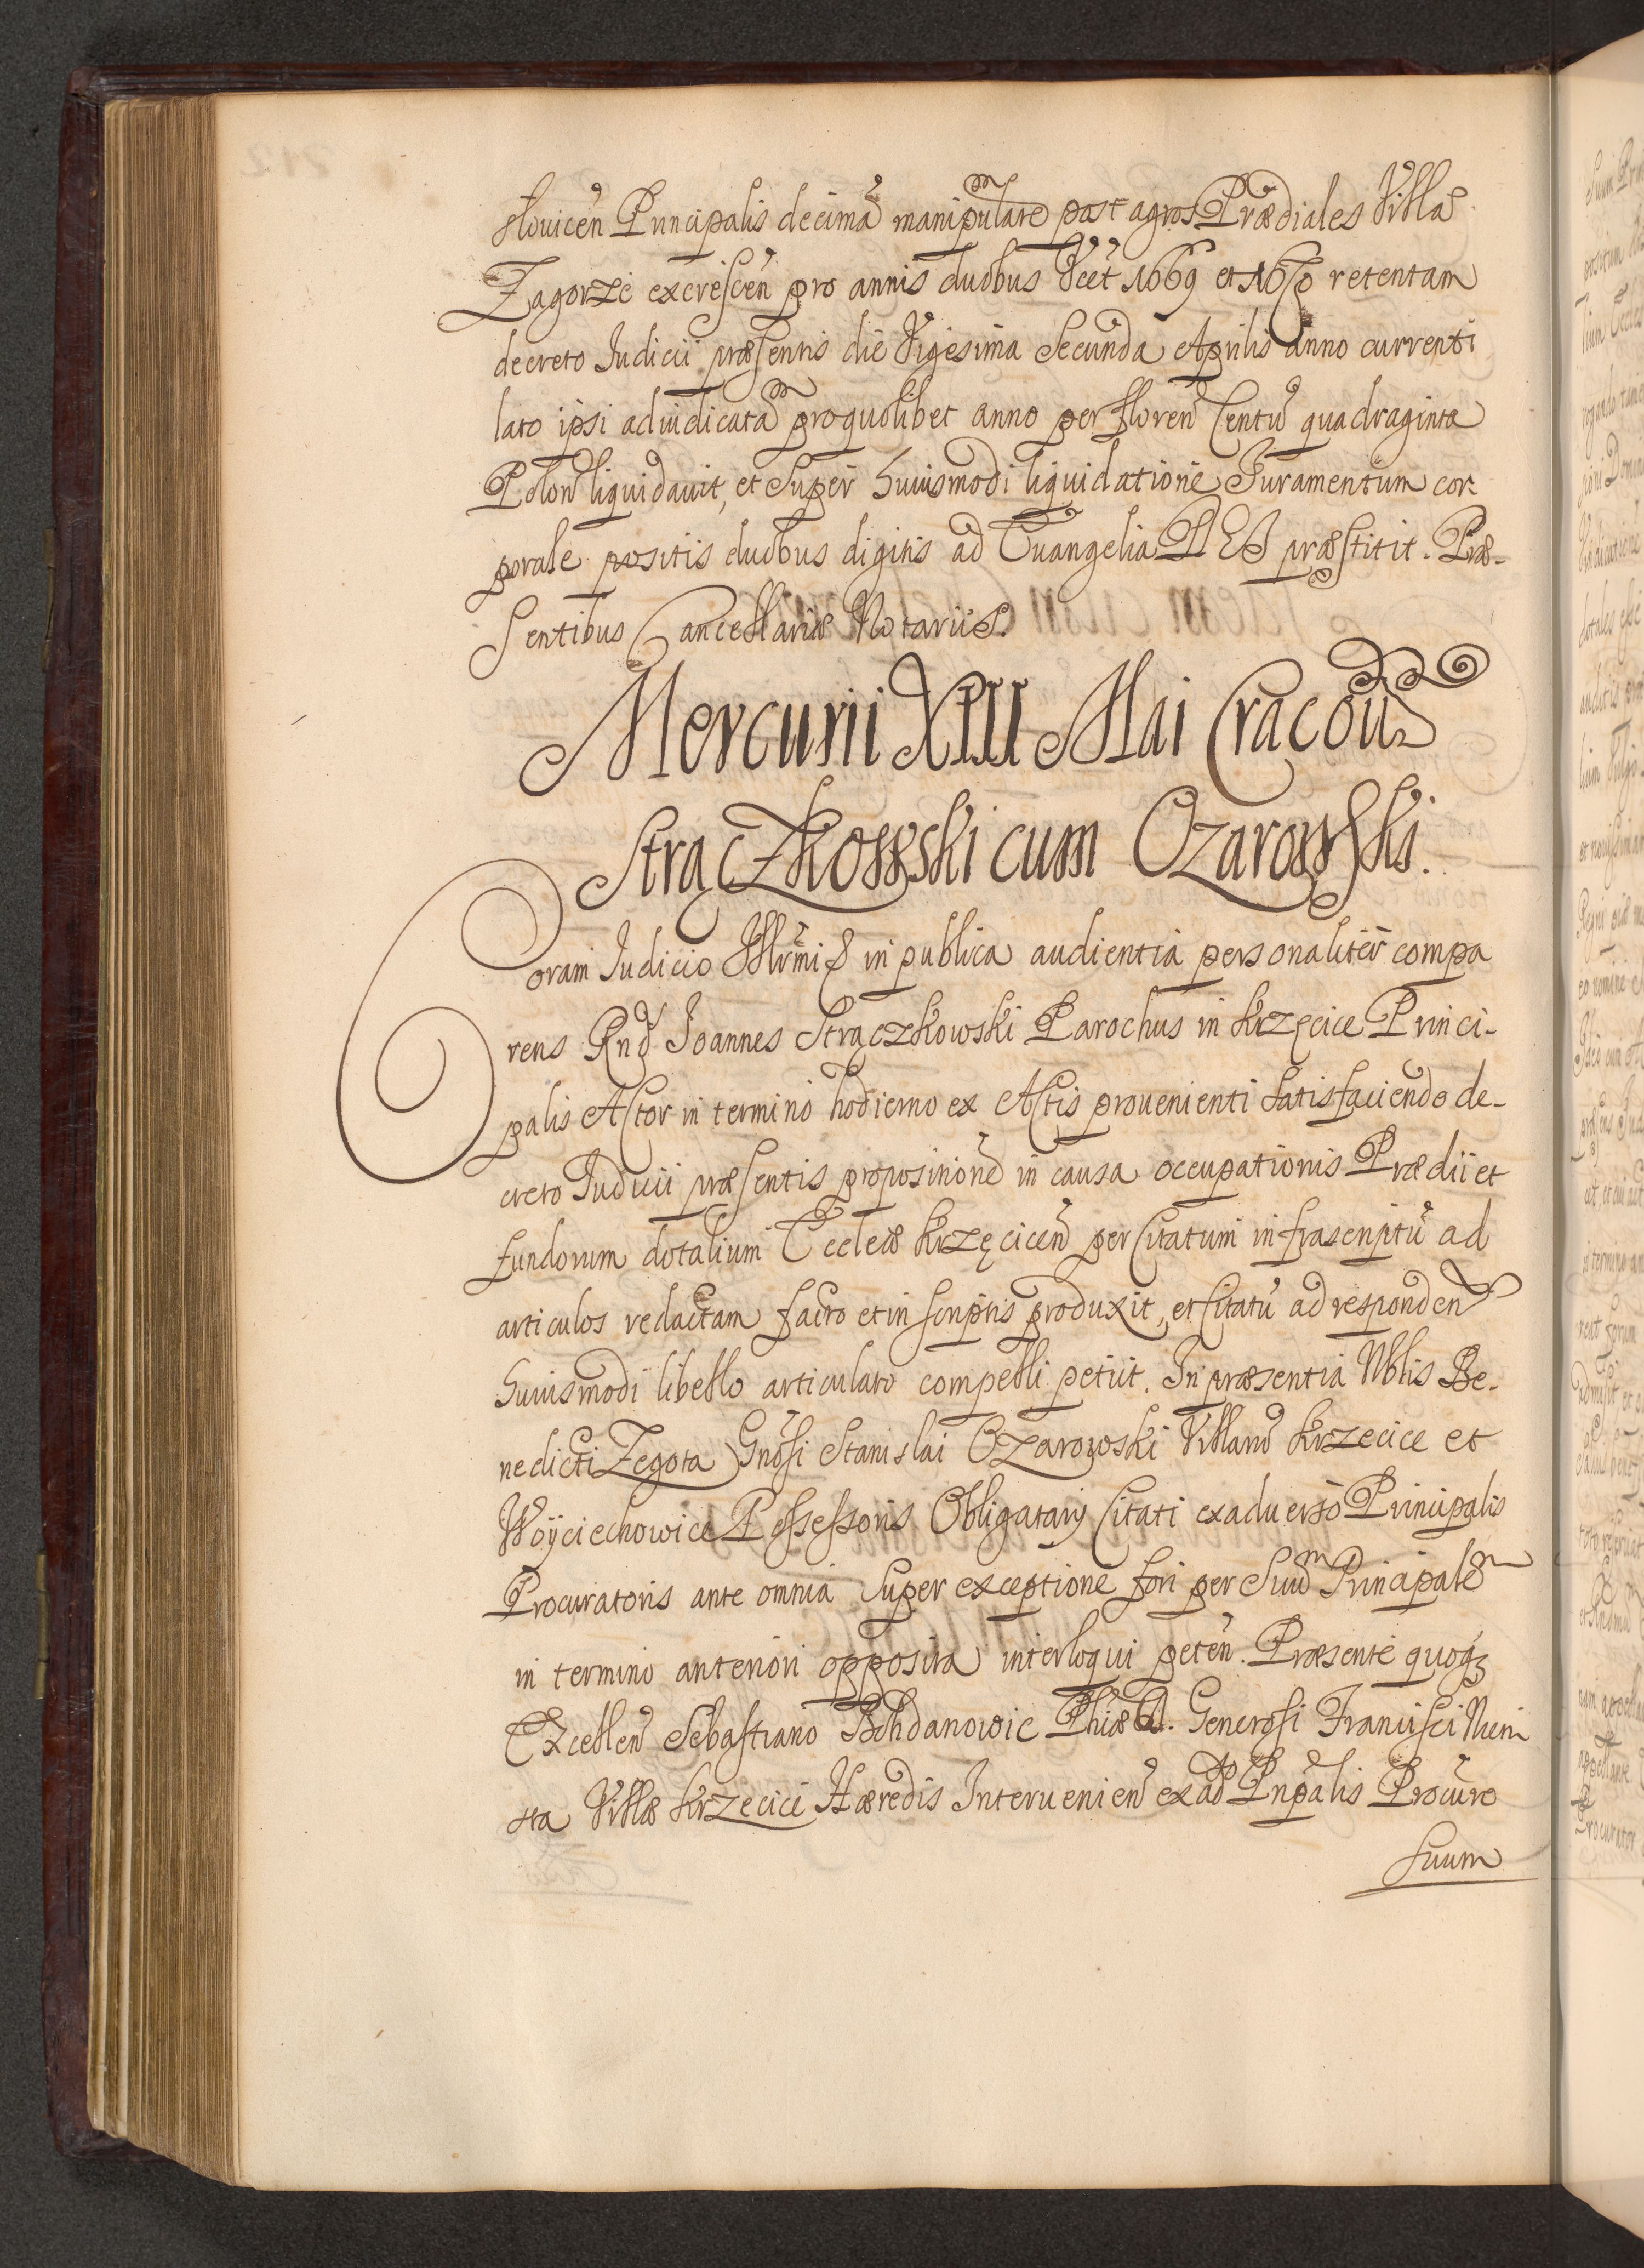 stouicen̄ Principalis decimā manipularē post agros Prædiales Villæ
Zagorze excrescen̄ pro annis duobus Vcēt 1669 et 1670 retentam
decreto Iudicii præsentis die Vigesima Secunda Aprilis anno currenti
lato ipsi adiudicatā pro quolibet anno per floren̄ Centū quadraginta
Polon̄ liquidauit, et Super huiusmodi liquidatione Iuramentum cor-
porale positis duobus digitis ad Euangelia DEI præstitit. Præ-
sentibus Cancellariæ Notariis.
Mercurii XIII Mai Cracouiæ
Strączkowski cum Ozarowski.
Coram Iudicio Illrmi in publica audientia personaliter compa
rens Rnd Ioannes Strączkowski Parochus in Krzęcice Princi-
palis Actor in termino hodierno ex Actis prouenienti Satisfaciendo de-
creto Iudicii præsentis propositionē in causa occupationis Prædii et
fundorum dotalium Eccleæ Krzęcicen̄ per Citatum infrascriptū ad
articulos redactam facto et in scriptis produxit, et Citatū ad responden̄
huiusmodi libello articulato compelli petiit. In præsentia Nblis Be-
nedicti Zegota Gnosi Stanislai Ozarowski Villarū Krzecice et
Woyciechowice Possessoris Obligatarij Citati ex aduerso Principalis
Procuratoris ante omnia Super exceptione fori per Suū Principalē
in termino anteriori opposita interloqui peten̄. Præsente quoqz
Excellen̄ Sebastiano Bohdanowic Phiæ D. Generosi Francisci Mni
tta Villæ Krzecice Hæredis Interuenien̄ ex adto Pnpalis Procure
suum